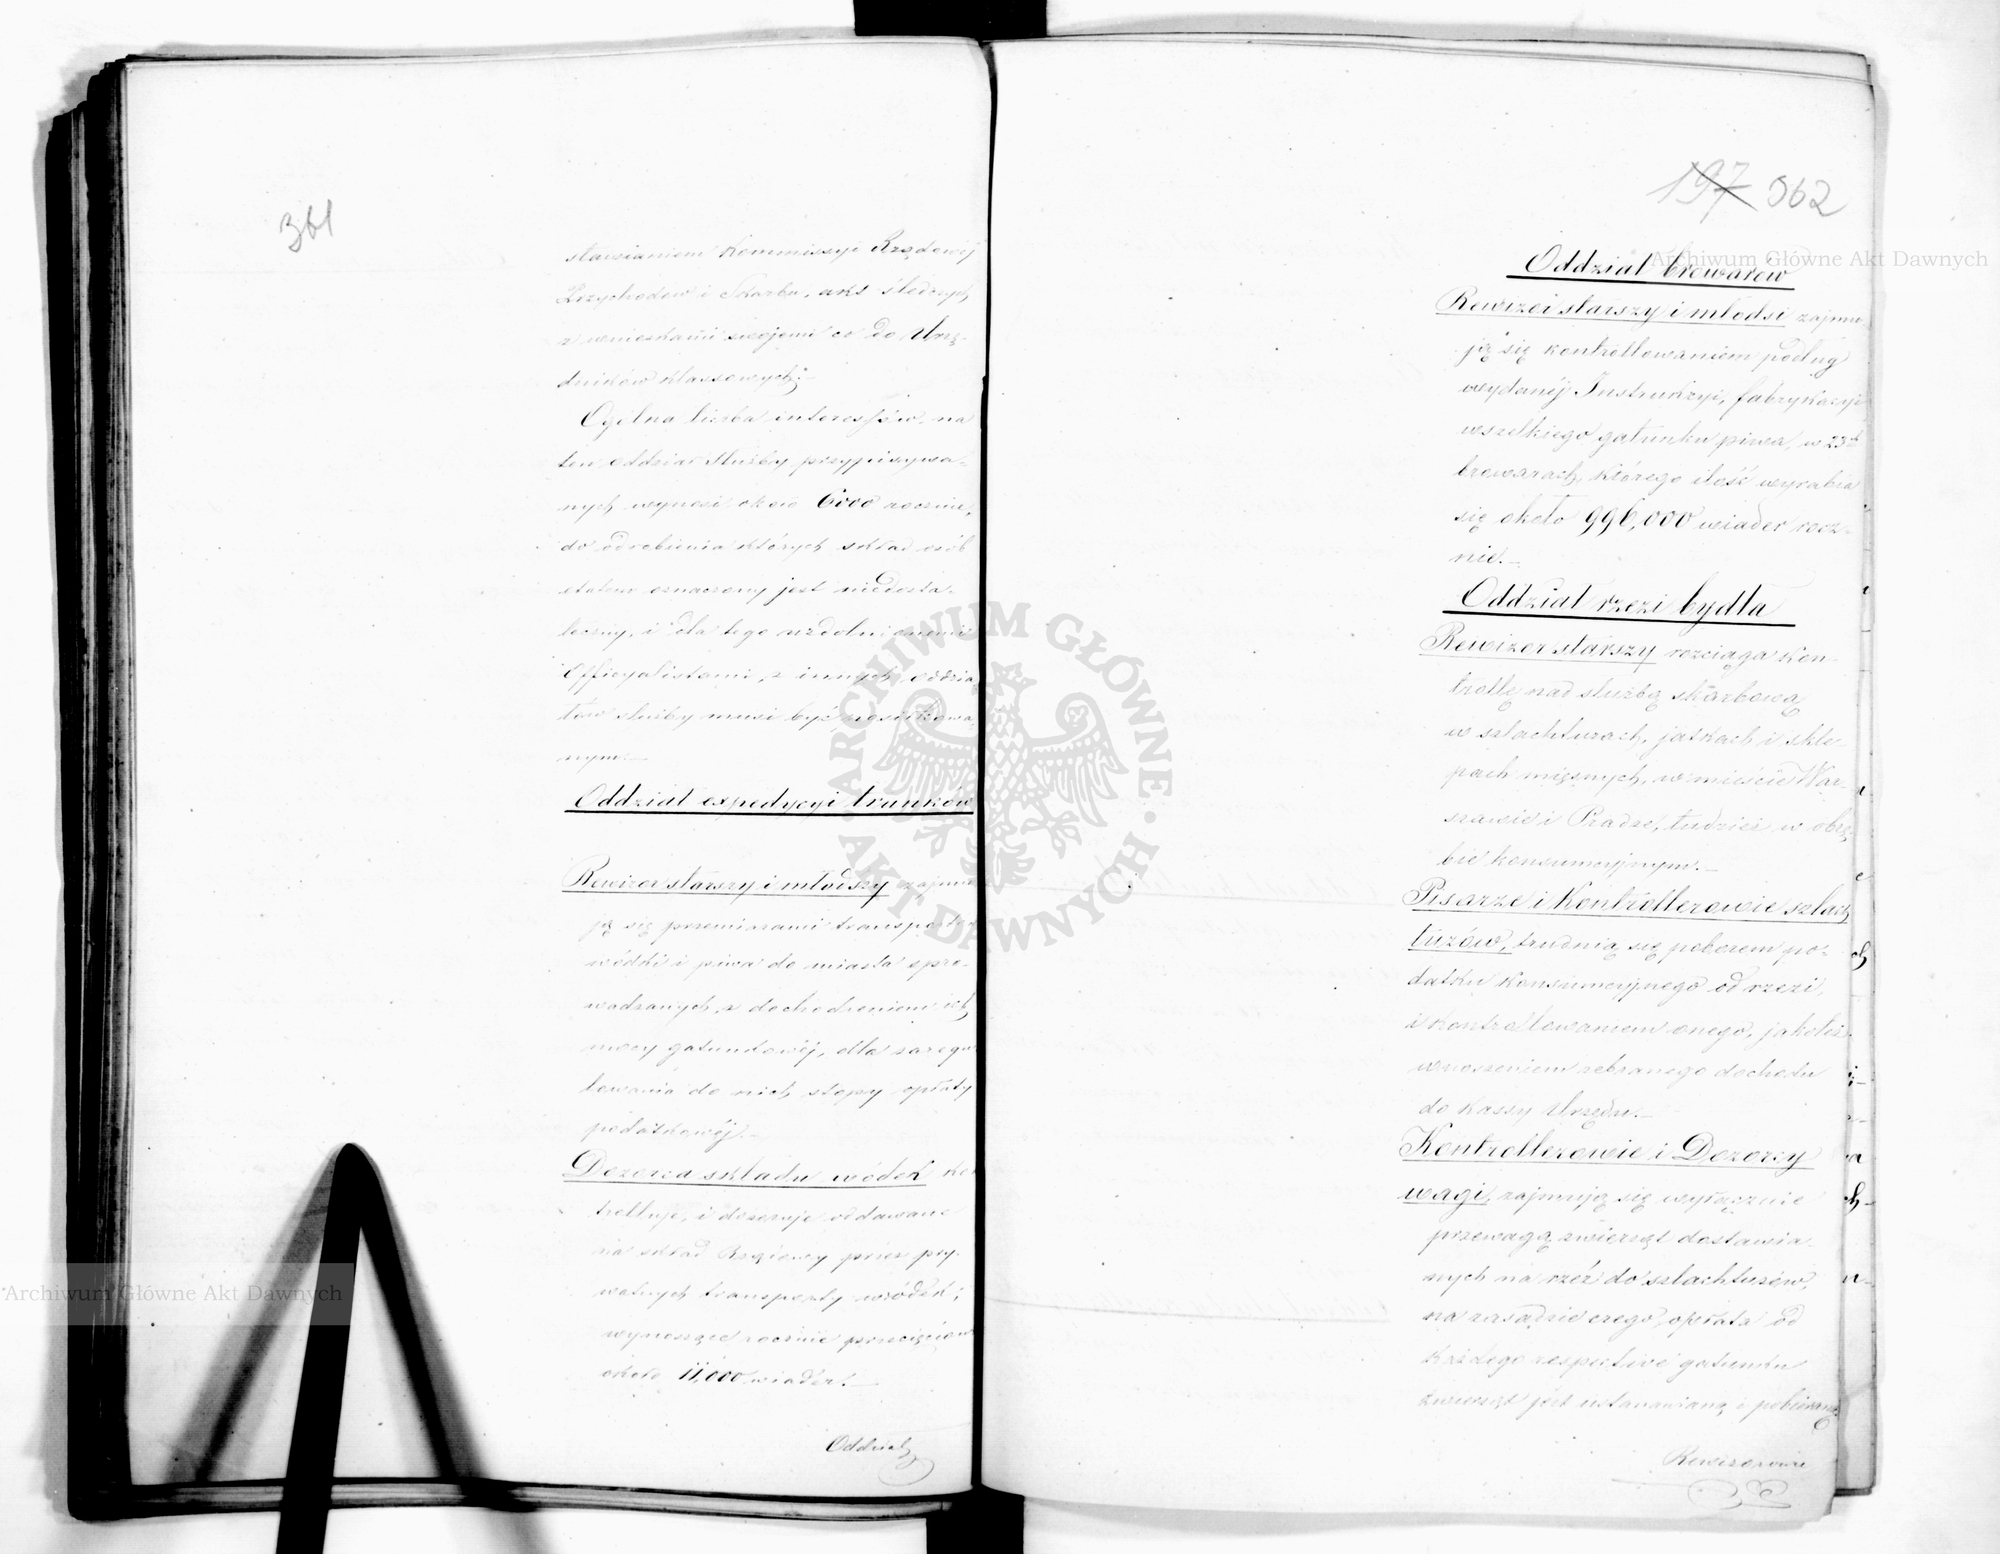 361
stawianiem Kommissyi Rządowej
Przychodów i Skarbu, akt śledczych
z wnioskami swojemi co do Urzę-
dników klassowych.—
Ogólna liczba interessów, na
ten oddział Służby przypisywa-
nych wynosi około 6000 rocznie,
do odrobienia których skład osób
etatem oznaczony jest niedosta-
teczny, i dla tego uzdolnionemi
Officyalistami, z innych oddzia-
łów służby musi być posiłkowa-
nym.—
Oddział expedycyi trunków
Rewizor starszy i młodszy zajmu-
ją się przemiarami transportów
wódki i piwa do miasta spro-
wadzanych, z dochodzeniem ich
mocy gatunkowéj, dla zaregu-
lowania do nich stopy opłaty
podatkowéj.—
Dozorca składu wódek kon
trolluje, i dozoruje oddawane
na skład Rządowy przez pry-
watnych transporty wódek;
wynoszące rocznie przecięciowo
około 11,000 wiader.—
Oddział
197 362
Oddział browarów
Rewizoi starszy i młodsi zajmu-
ją się kontrollowaniem podług
wydanéj Instrukcyi, fabrykacyi
wszelkiego gatunku piwa, w 23ch
browarach, którego ilość wyrabia
się około 996,000 wiader rocz-
nie.—
Oddział rzezi bydła
Rewizor starszy rozciąga kon-
trollę nad służbą skarbową
w szlachtuzach, jatkach i skle-
pach mięsnych, w mieście War-
szawie i Pradze, tudzież w obrę-
bie konsumcyjnym.—
Pisarze i Kontrollerowie szlach
tuzów, trudnią się poborem po-
datku konsumcyjnego od rzezi,
i kontrollowaniem onego, jakoteż
wnoszeniem zebranego dochodu
do Kassy Urzędu.—
Kontrollerowie i Dozorcy
wagi, zajmują się wyłącznie
przewagą zwierząt dostawia-
nych na rzéź do szlachtuzów,
na zasadzie czego, opłata od
każdego respective gatunku
zwierząt jest ustanawianą i pobieraną
Rewizorowie
Archiwum Główne Akt Dawnych
Archiwum Główne Akt Dawnych
ARCHIWUM GŁÓWNE AKT DAWNYCH